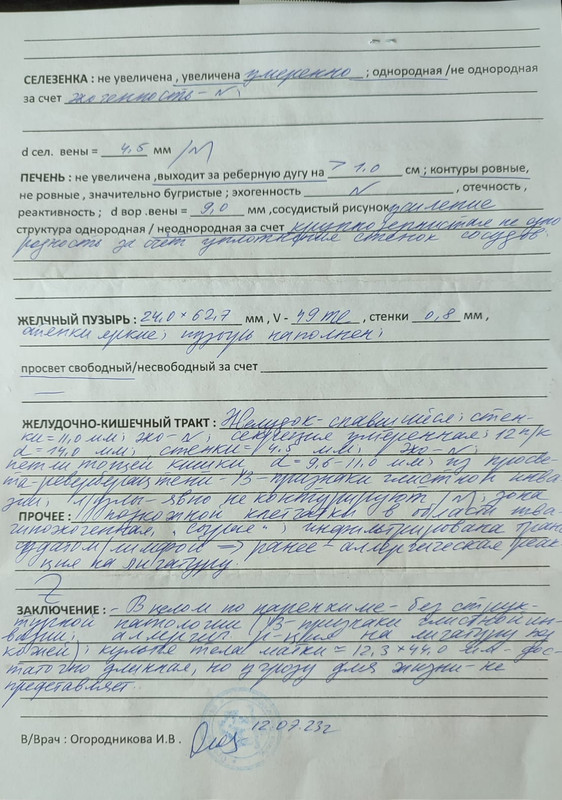 СЕЛЕЗЕНКА : не увеличена , увеличена умеренно ; однородная /не однородная
за счет эхогенность - N ;
d сел. вены = 4,5 мм /N
ПЕЧЕНЬ : не увеличена ,выходит за реберную дугу на > 1.0 см ; контуры ровные,
не ровные , значительно бугристые ; эхогенность N , отечность ,
реактивность ; d вор .вены = 9,0 мм ,сосудистый рисунок усиление
структура однородная / неоднородная за счет крупнозернистая не одно
родность за счет уплотнения стенок сосудов.
ЖЕЛЧНЫЙ ПУЗЫРЬ : 24,0 × 62,7 мм , V - 49 , стенки 0,8 мм ,
стенки яркие; пузырь наполнен;
просвет свободный/несвободный за счет
—
ЖЕЛУДОЧНО-КИШЕЧНЫЙ ТРАКТ : Желудок - спавшийся; стен-
ки = 11,0 мм; эхо - N; секреция умеренная; 12 п/к
d = 14,0 мм, стенки = 4,5 мм; эхо - N;
петли тощей кишки d = 9,6 - 11,0 мм; из просве-
та - реверберац тени - В-признаки глистной инва
зии; л/узлы - явно не контурируют /N; зона
ПРОЧЕЕ : подкожной клетчатки в области шва
гипоэхогенная, "сырая"; инфильтрирована транс
судатом /лимфой => ранее - аллергическая реак
ция на лигатуру
ЗАКЛЮЧЕНИЕ : - В целом по паренхиме - без струк-
турной патологии /В-признаки глистной ин-
вазии; аллергич р-ция на лигатуру под
кожей); культя тела матки = 12,3 × 44,0 мм - дос-
таточно длинная, но угрозу для жизни - не
представляет.
12.07.23г
В/Врач : Огородникова И.В .